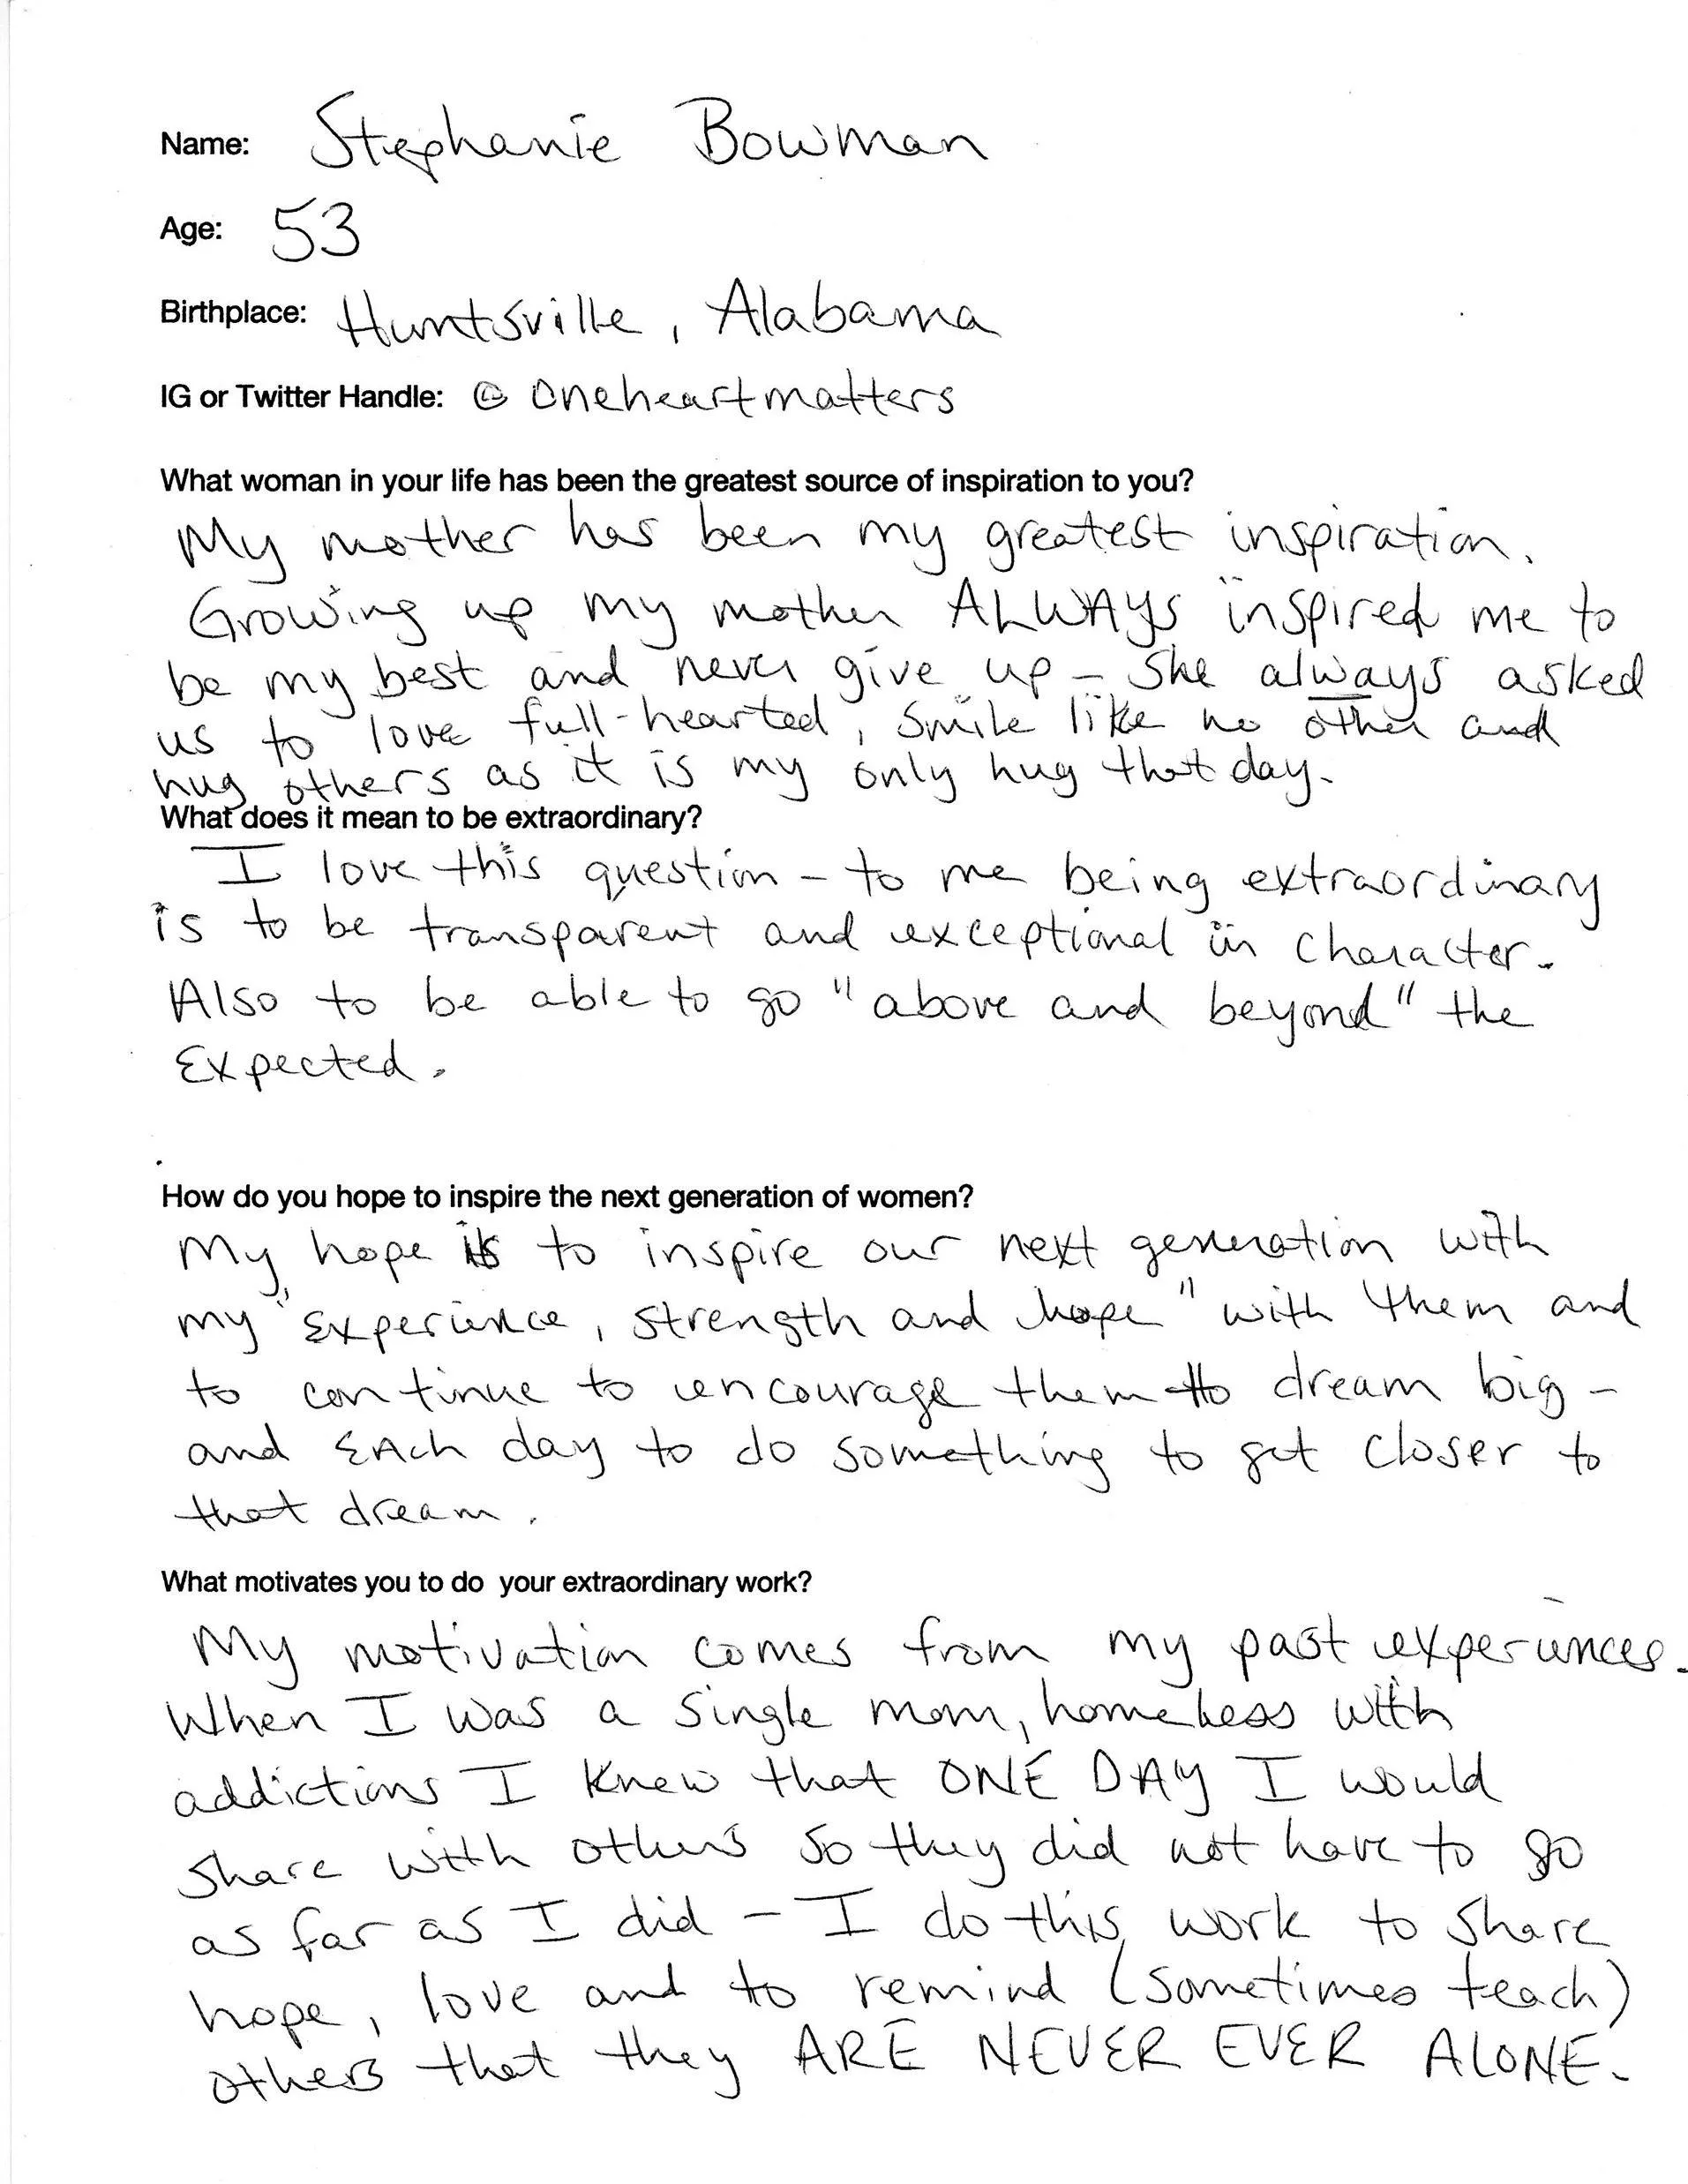 Name: Stephanie Bowman
Age: 53
Birthplace: Huntsville, Alabama
IG or Twitter Handle: @oneheartmatters
What woman in your life has been the greatest source of inspiration to you?
My mother has been my greatest inspiration.
Growing up my mother ALWAYS inspired me to
be my best and never give up - She always asked
us to love full-hearted, smile like no other and
hug others as it is my only hug that day.
What does it mean to be extraordinary?
I love this question - to me being extraordinary
is to be transparent and exceptional in character.
Also to be able to go "above and beyond" the
Expected.
How do you hope to inspire the next generation of women?
My hope is to inspire our next generation with
my "Experience, strength and hope" with them and
to continue to encourage them to dream big -
and EAch day to do something to get closer to
that dream.
What motivates you to do your extraordinary work?
My motivation comes from my past experiences.
When I was a single mom, homeless with
addictions I knew that ONE DAY I would
share with others so they did not have to go
as far as I did - I do this work to share
hope, love and to remind (sometimes teach)
others that they ARE NEVER EVER ALONE.